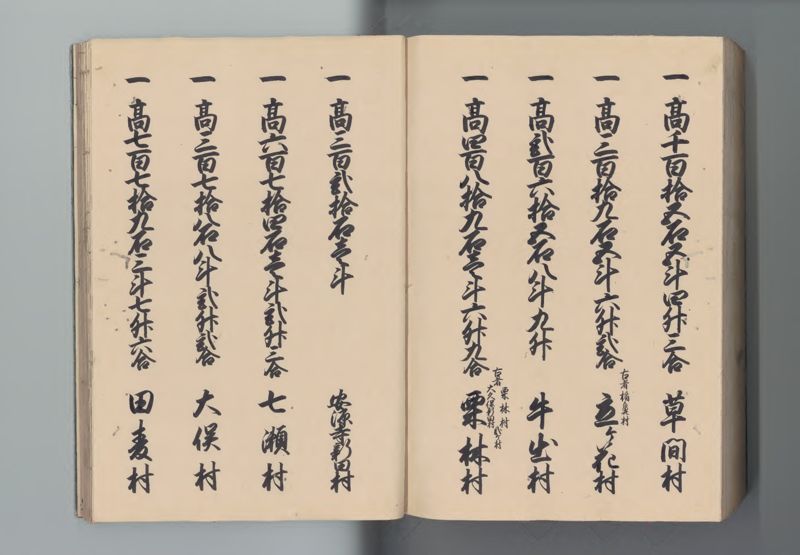 一 高千百拾五石五斗四升三合 草間村
一 高三百拾九石五斗六升弐合 立ケ花村
古者稲
村
一 高弐百六拾五石八斗九升 牛出村
一 高四百八拾九石壱斗六升九合 栗林村
古者 栗林村
大久保新田村
一 高三百弐拾石壱斗 安源寺新田村
一 高六百七拾四石壱斗弐升三合 七瀬村
一 高三百七拾八石八斗弐升弐合 大俣村
一 高七百七拾九石三斗七升六合 田麦村